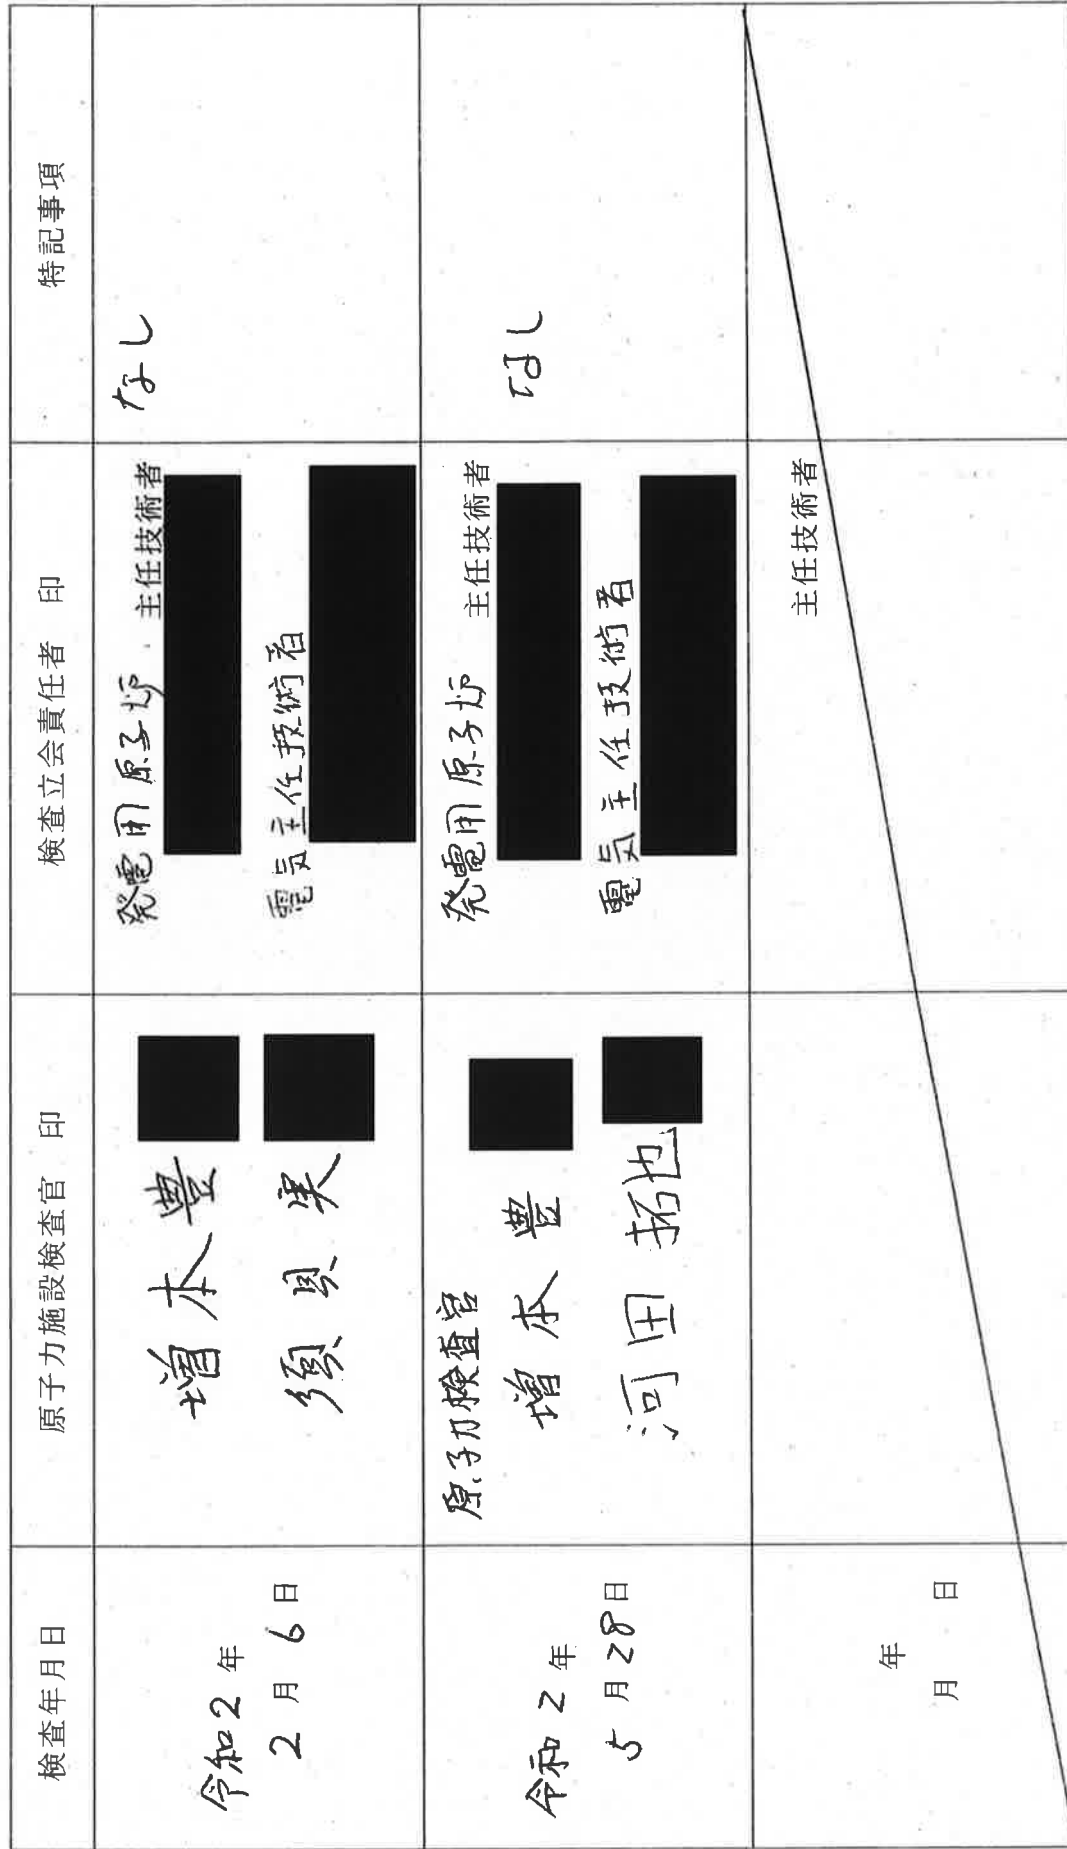 検査年月日
原子力施設検査官　印
検査立会責任者　印
特記事項
令和2年
2月6日
増本 豊
須貝 実
発電用原子炉 主任技術者
電気主任技術者
なし
令和2年
5月28日
原子力検査官
増本 豊
河田 拓也
発電用原子炉 主任技術者
電気主任技術者
なし
年
月 日
主任技術者